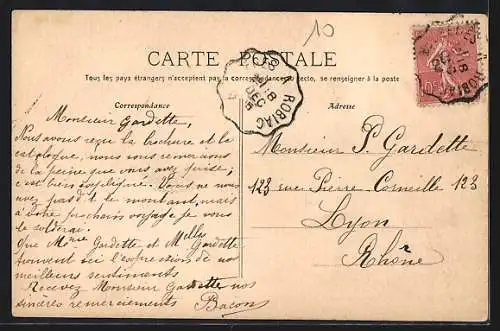 10
CARTE POSTALE
Tous les pays étrangers n'acceptent pas la correspondance au recto, se renseigner à la poste
Correspondance
Adresse
ROBIAC
18
DEC
Monsieur Gardette,
Nous avons reçu la brochure et la
catalogue, nous vous remercions
de la peine que vous avez prise;
c'est bien expliqué. Vous ne nous
avez pas dit le montant, mais
à votre prochain voyage je vous
le solderai.
Que Mme Gardette et Melles Gardette
trouvent ici l'expression de nos
meilleurs sentiments
Recevez Monsieur Gardette nos
sincères remerciements
Bacon
Monsieur P. Gardette
123 rue Pierre Corneille 123
Lyon
Rhône